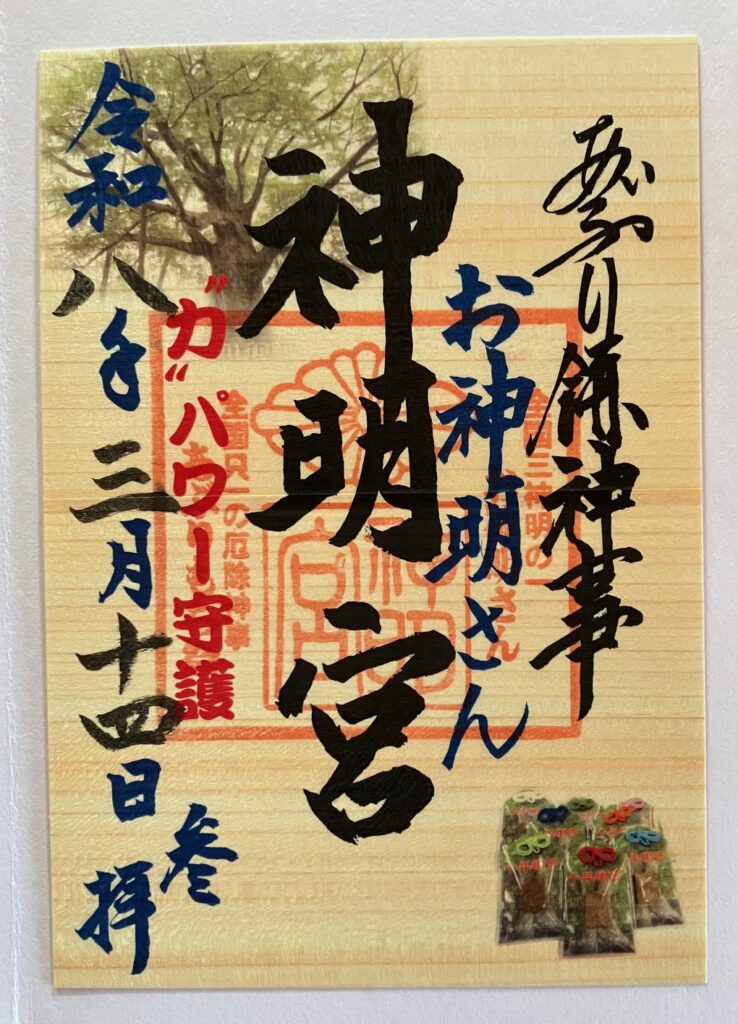 あぶり餅神事
お神明さん
神明宮
"力"パワー守護
令和八年三月十四日
参拝
全国三神明の一
神明宮
全国只一の厄除神事